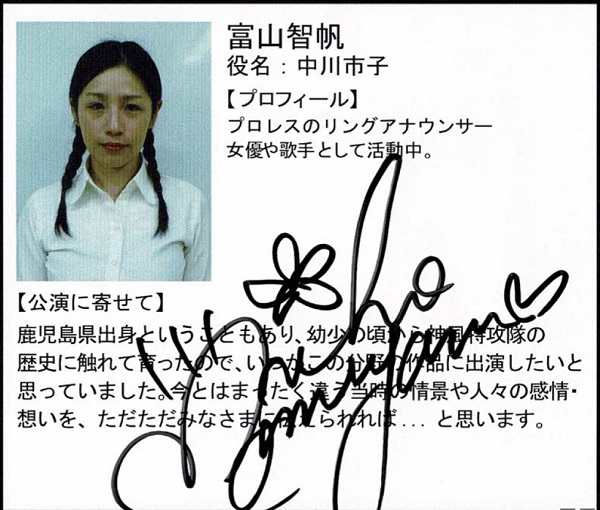 富山智帆
役名：中川市子
【プロフィール】
プロレスのリングアナウンサー
女優や歌手として活動中。
【公演に寄せて】
鹿児島県出身ということもあり、幼少の頃から神風特攻隊の
歴史に触れて育ったので、いつかこの分野の作品に出演したいと
思っていました。今とはまったく違う当時の情景や人々の感情・
想いを、ただただみなさまに伝えられれば... と思います。